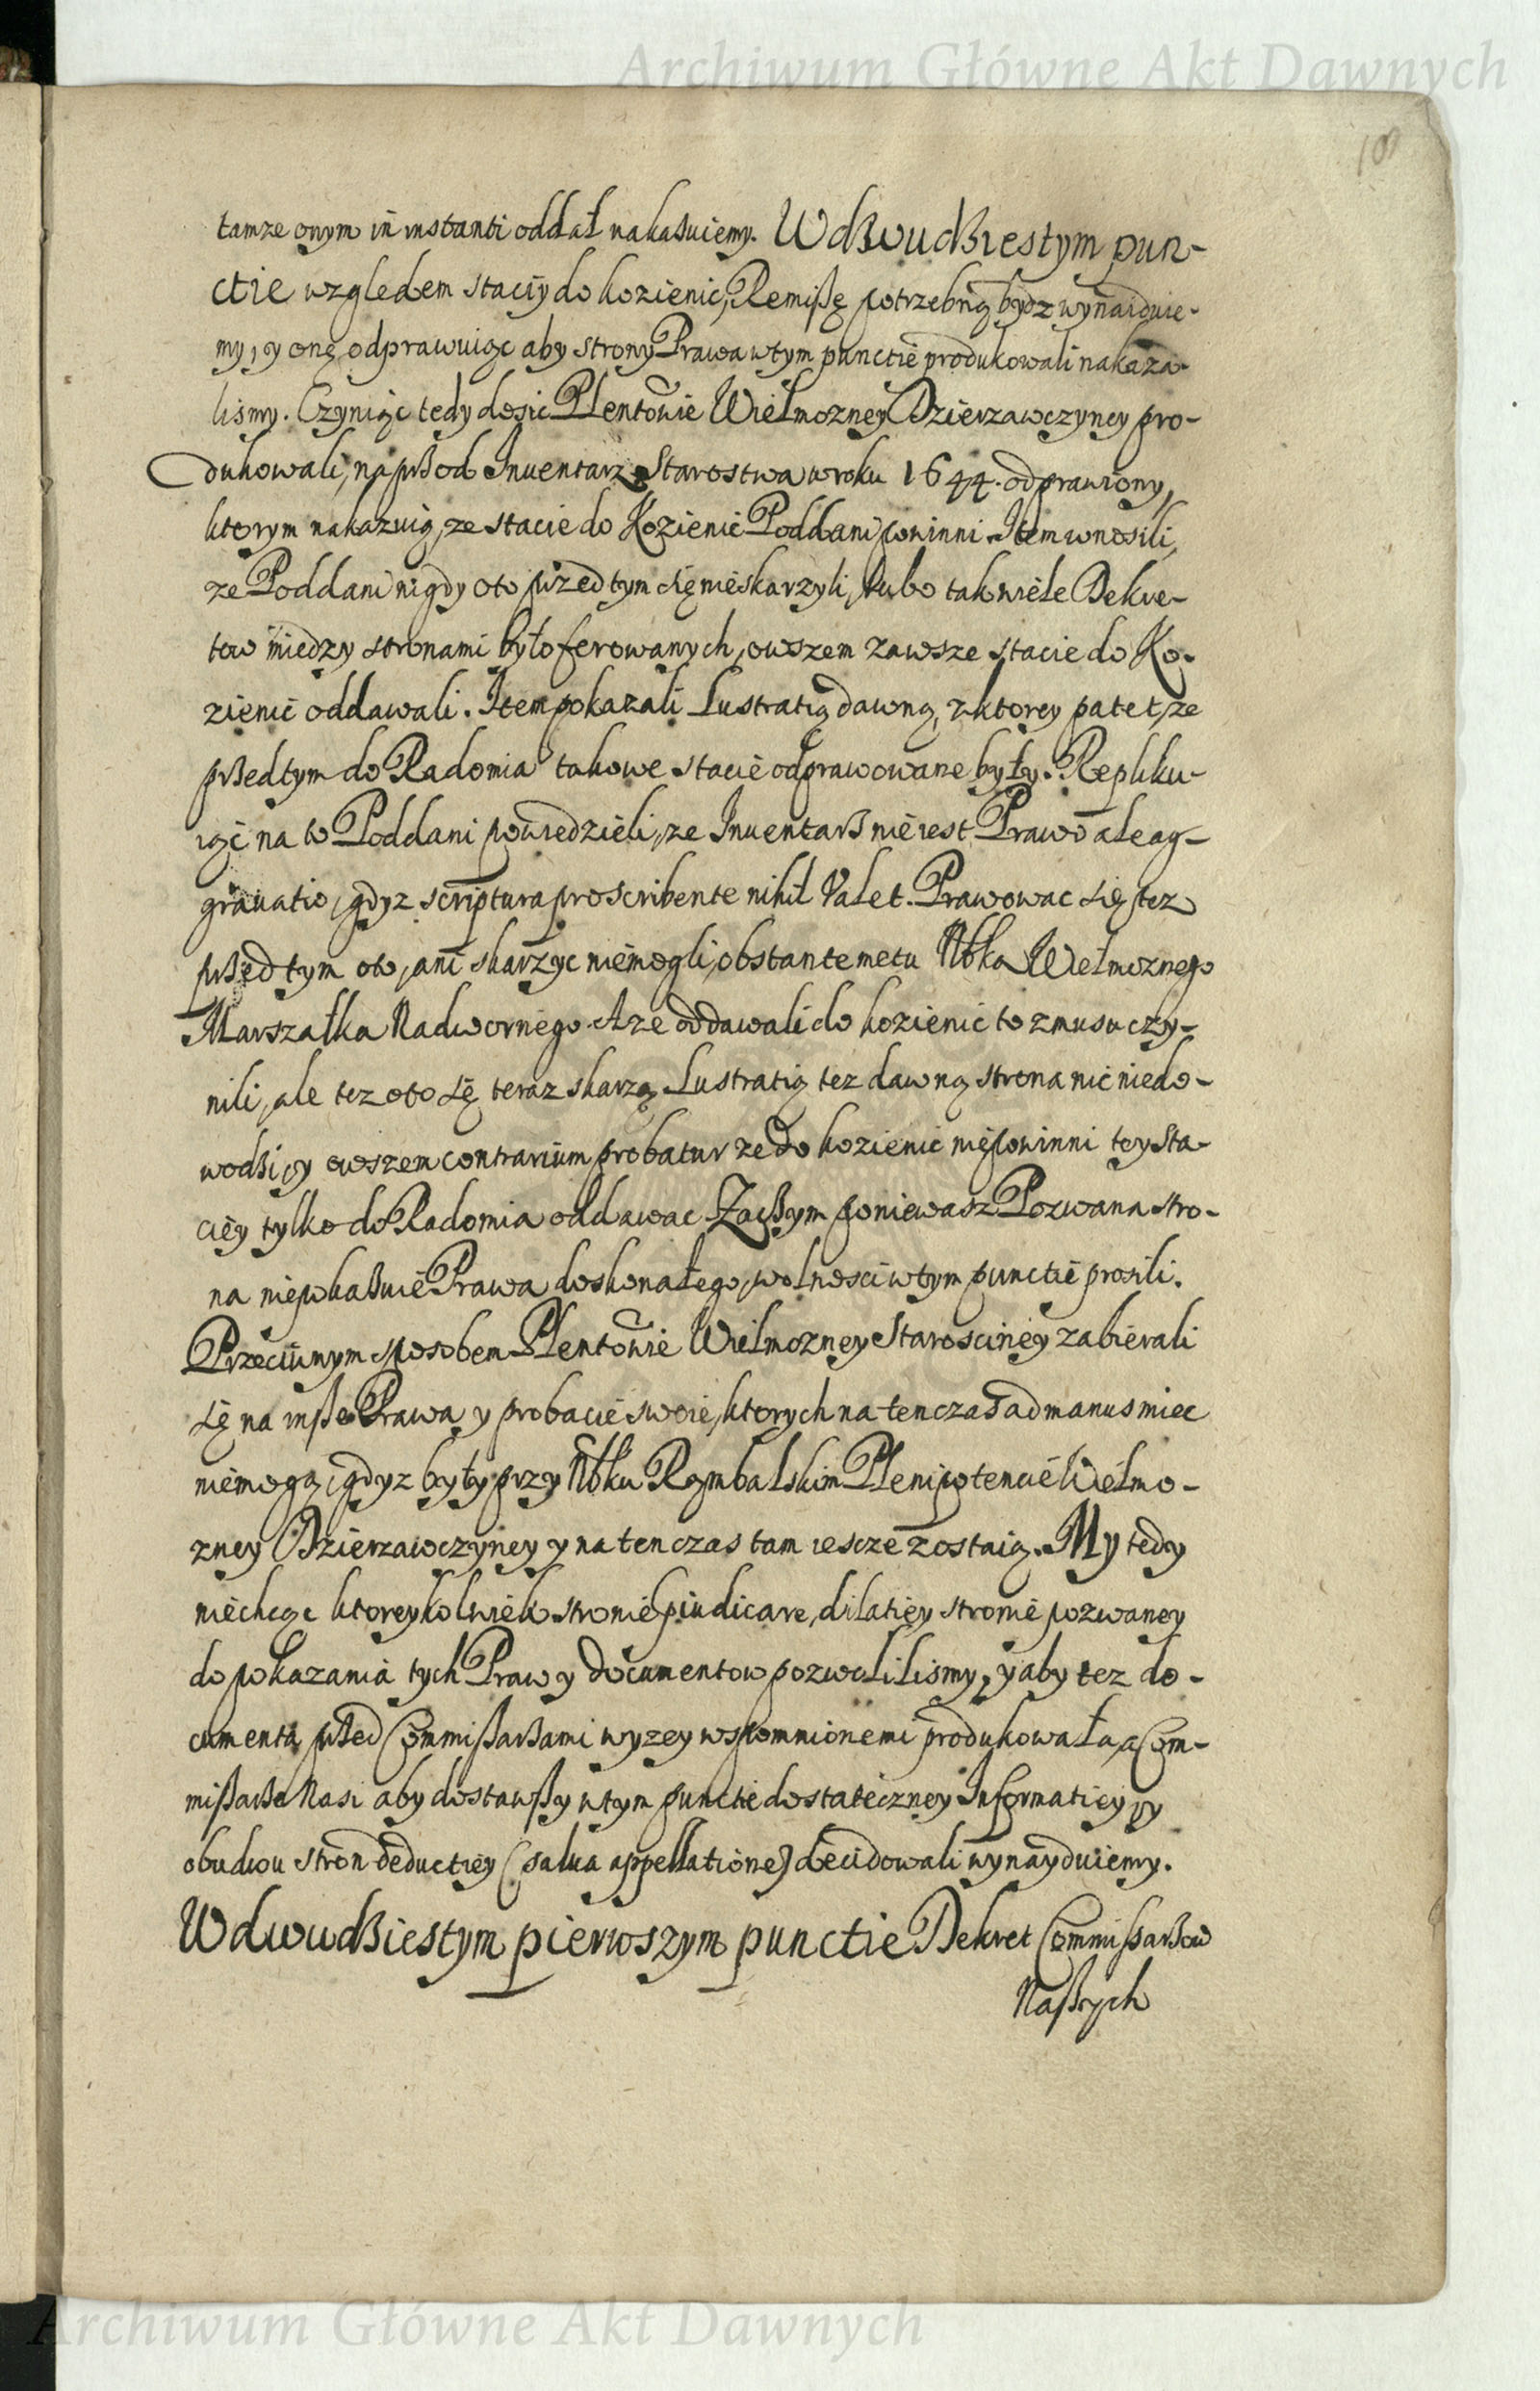 Archiwum Główne Akt Dawnych
100
tamze onym in instanti oddał nakaßuiemy. W dßwudßiestym pun-
ctie wzgledem staciy do kozienic, Remißę potrzebną bydz wynaiduie-
my, y onę odprawuiąc aby strony Prawa wtym punctie produkowali nakaza-
lismy. Czyniąc tedy dosic Plentowie Wielmozney Dzierzawczyney pro-
dukowali, naprßod Inuentarz Starostwa wroku 1644. odprawiony,
ktorym nakazuią, ze stacie do Kozienic Poddani powinni. Item wnosili,
ze Poddani nigdy oto przedtym się nieskarzyli, lubo tak wiele Dekre-
tow miedzy stronami było ferowanych, owszem zawsze stacie do Ko-
zienic oddawali. Item pokazali Lustratią dawną, zktorey patet, ze
przßedtym do Radomia takowe stacie odprawowane były. Repliku-
iąc na to Poddani powiedzieli, ze Inuentarß nie iest Prawo ale ag-
grauatio, gdyz scriptura pro scribente nihil valet. Prawowac się tez
przßed tym oto, ani skarzyc niemogli, obstante metu Nbka Wielmoznego
Marszałka Nadwornego. A ze oddawali do kozienic to zmusu czy-
nili, ale tez oto się teraz skarzą. Lustratią tez dawną strona nic niedo-
wodßi, y owszem contrarium probatur ze do kozienic niepowinni tey sta-
ciey tylko do Radomia oddawac. Zaczym poniewasz Pozwana stro-
na niepokaßuie Prawa doskonałego, wolnosci wtym punctie prosili.
Przeciwnym sposobem Plentowie Wielmozney Starosciney zabierali
się na inße Prawa y probacie swoie, ktorych na tenczas ad manus miec
niemogą, gdyz były przy Nbku Rembalskim Plenipotencie Wielmo-
zney Dzierzawczyney y na tenczas tam iescze zostaią. My tedy
niechcąc ktoreykolwiek stronie piudicare, dilatiey stronie pozwaney
do pokazania tych Praw y documentow pozwolilismy, y aby tez do-
cumenta przßed Commißarßami wyzey wspomnionemi produkowała, a Com-
mißarße Nasi aby dostawßy wtym punctie dostateczney Informatiey, y
obudwu stron deductiey (salua appellatione) decidowali wynayduiemy.
W dwudßiestym pierwszym punctie Dekret Commißarßow
Naßych
Archiwum Główne Akt Dawnych